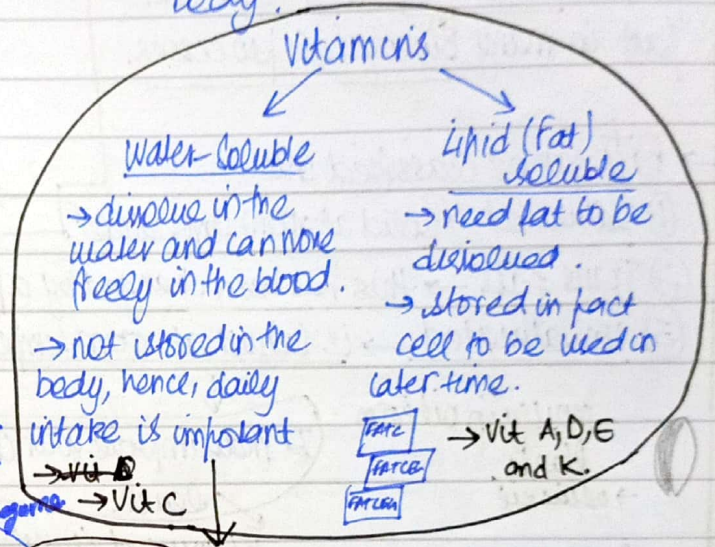 body.
Vitamins
Water-Soluble
→ dissolve in the
water and can move
freely in the blood.
→ not stored in the
body, hence, daily
intake is important
→ Vit C
Lipid (Fat)
Soluble
→ need fat to be
dissolved.
→ stored in fact
cell to be used in
later time.
FAT C
FAT CE
FAT CELL
→ Vit A, D, E
and K.